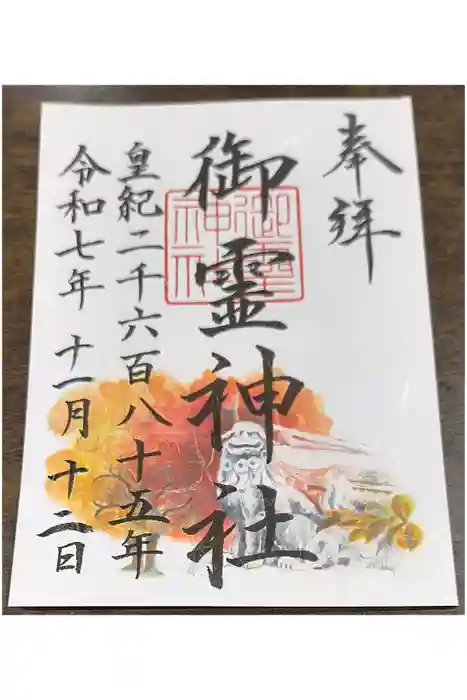 奉拝
御霊神社
御霊神社
皇紀二千六百八十五年
令和七年十一月十二日